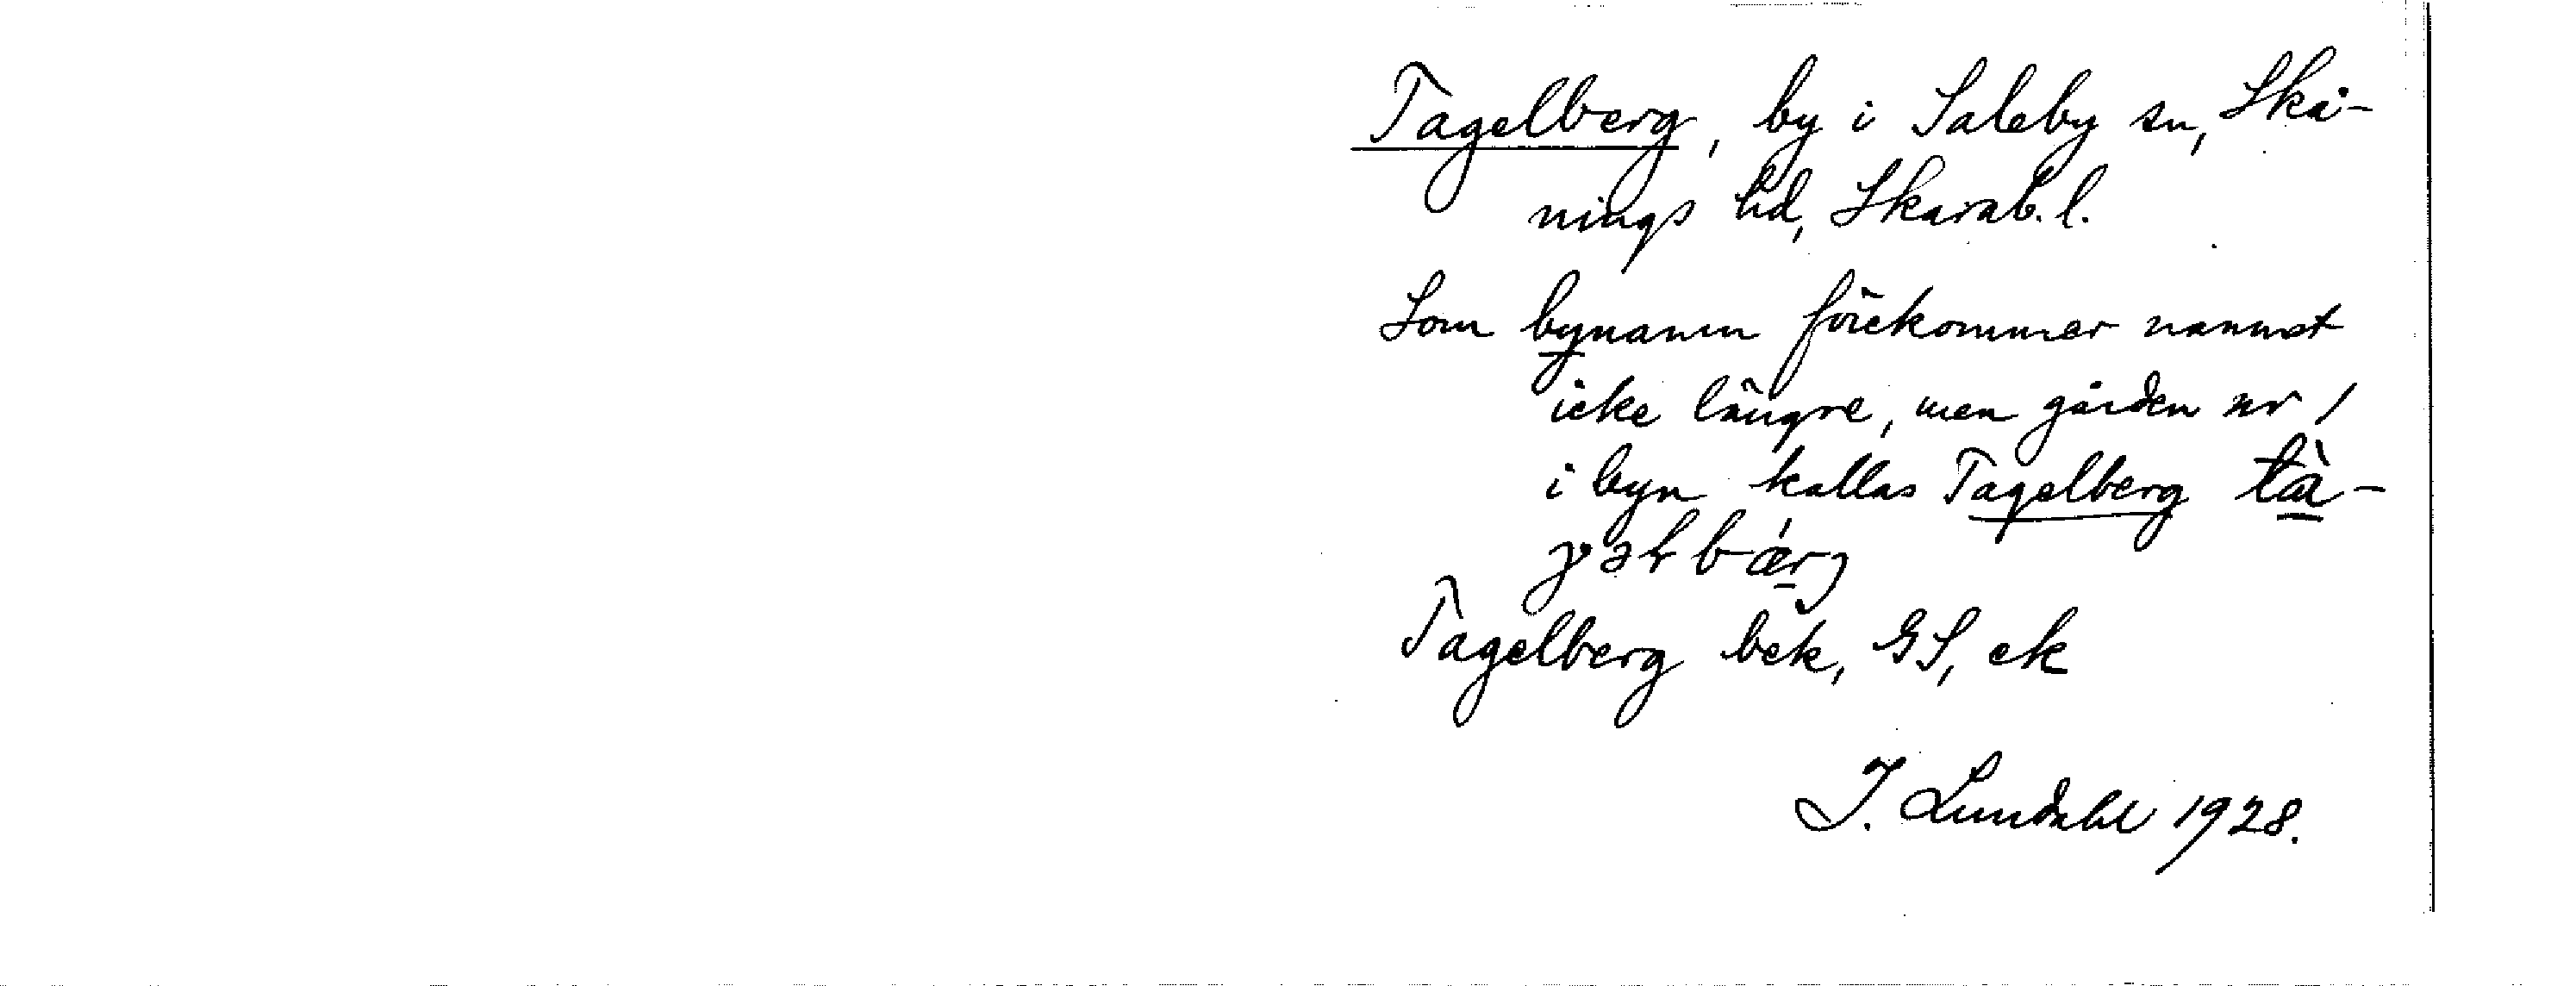 Tagelberg, by i Saleby sn, Skå-
nings hd, Skarab. l.
Som bynamn förekommer namnet
icke längre, men gården nr 1
i byn kallas Tagelberg tà-
gəlbǽrj
Tagelberg bek, GS, ek
I. Lundahl 1928.